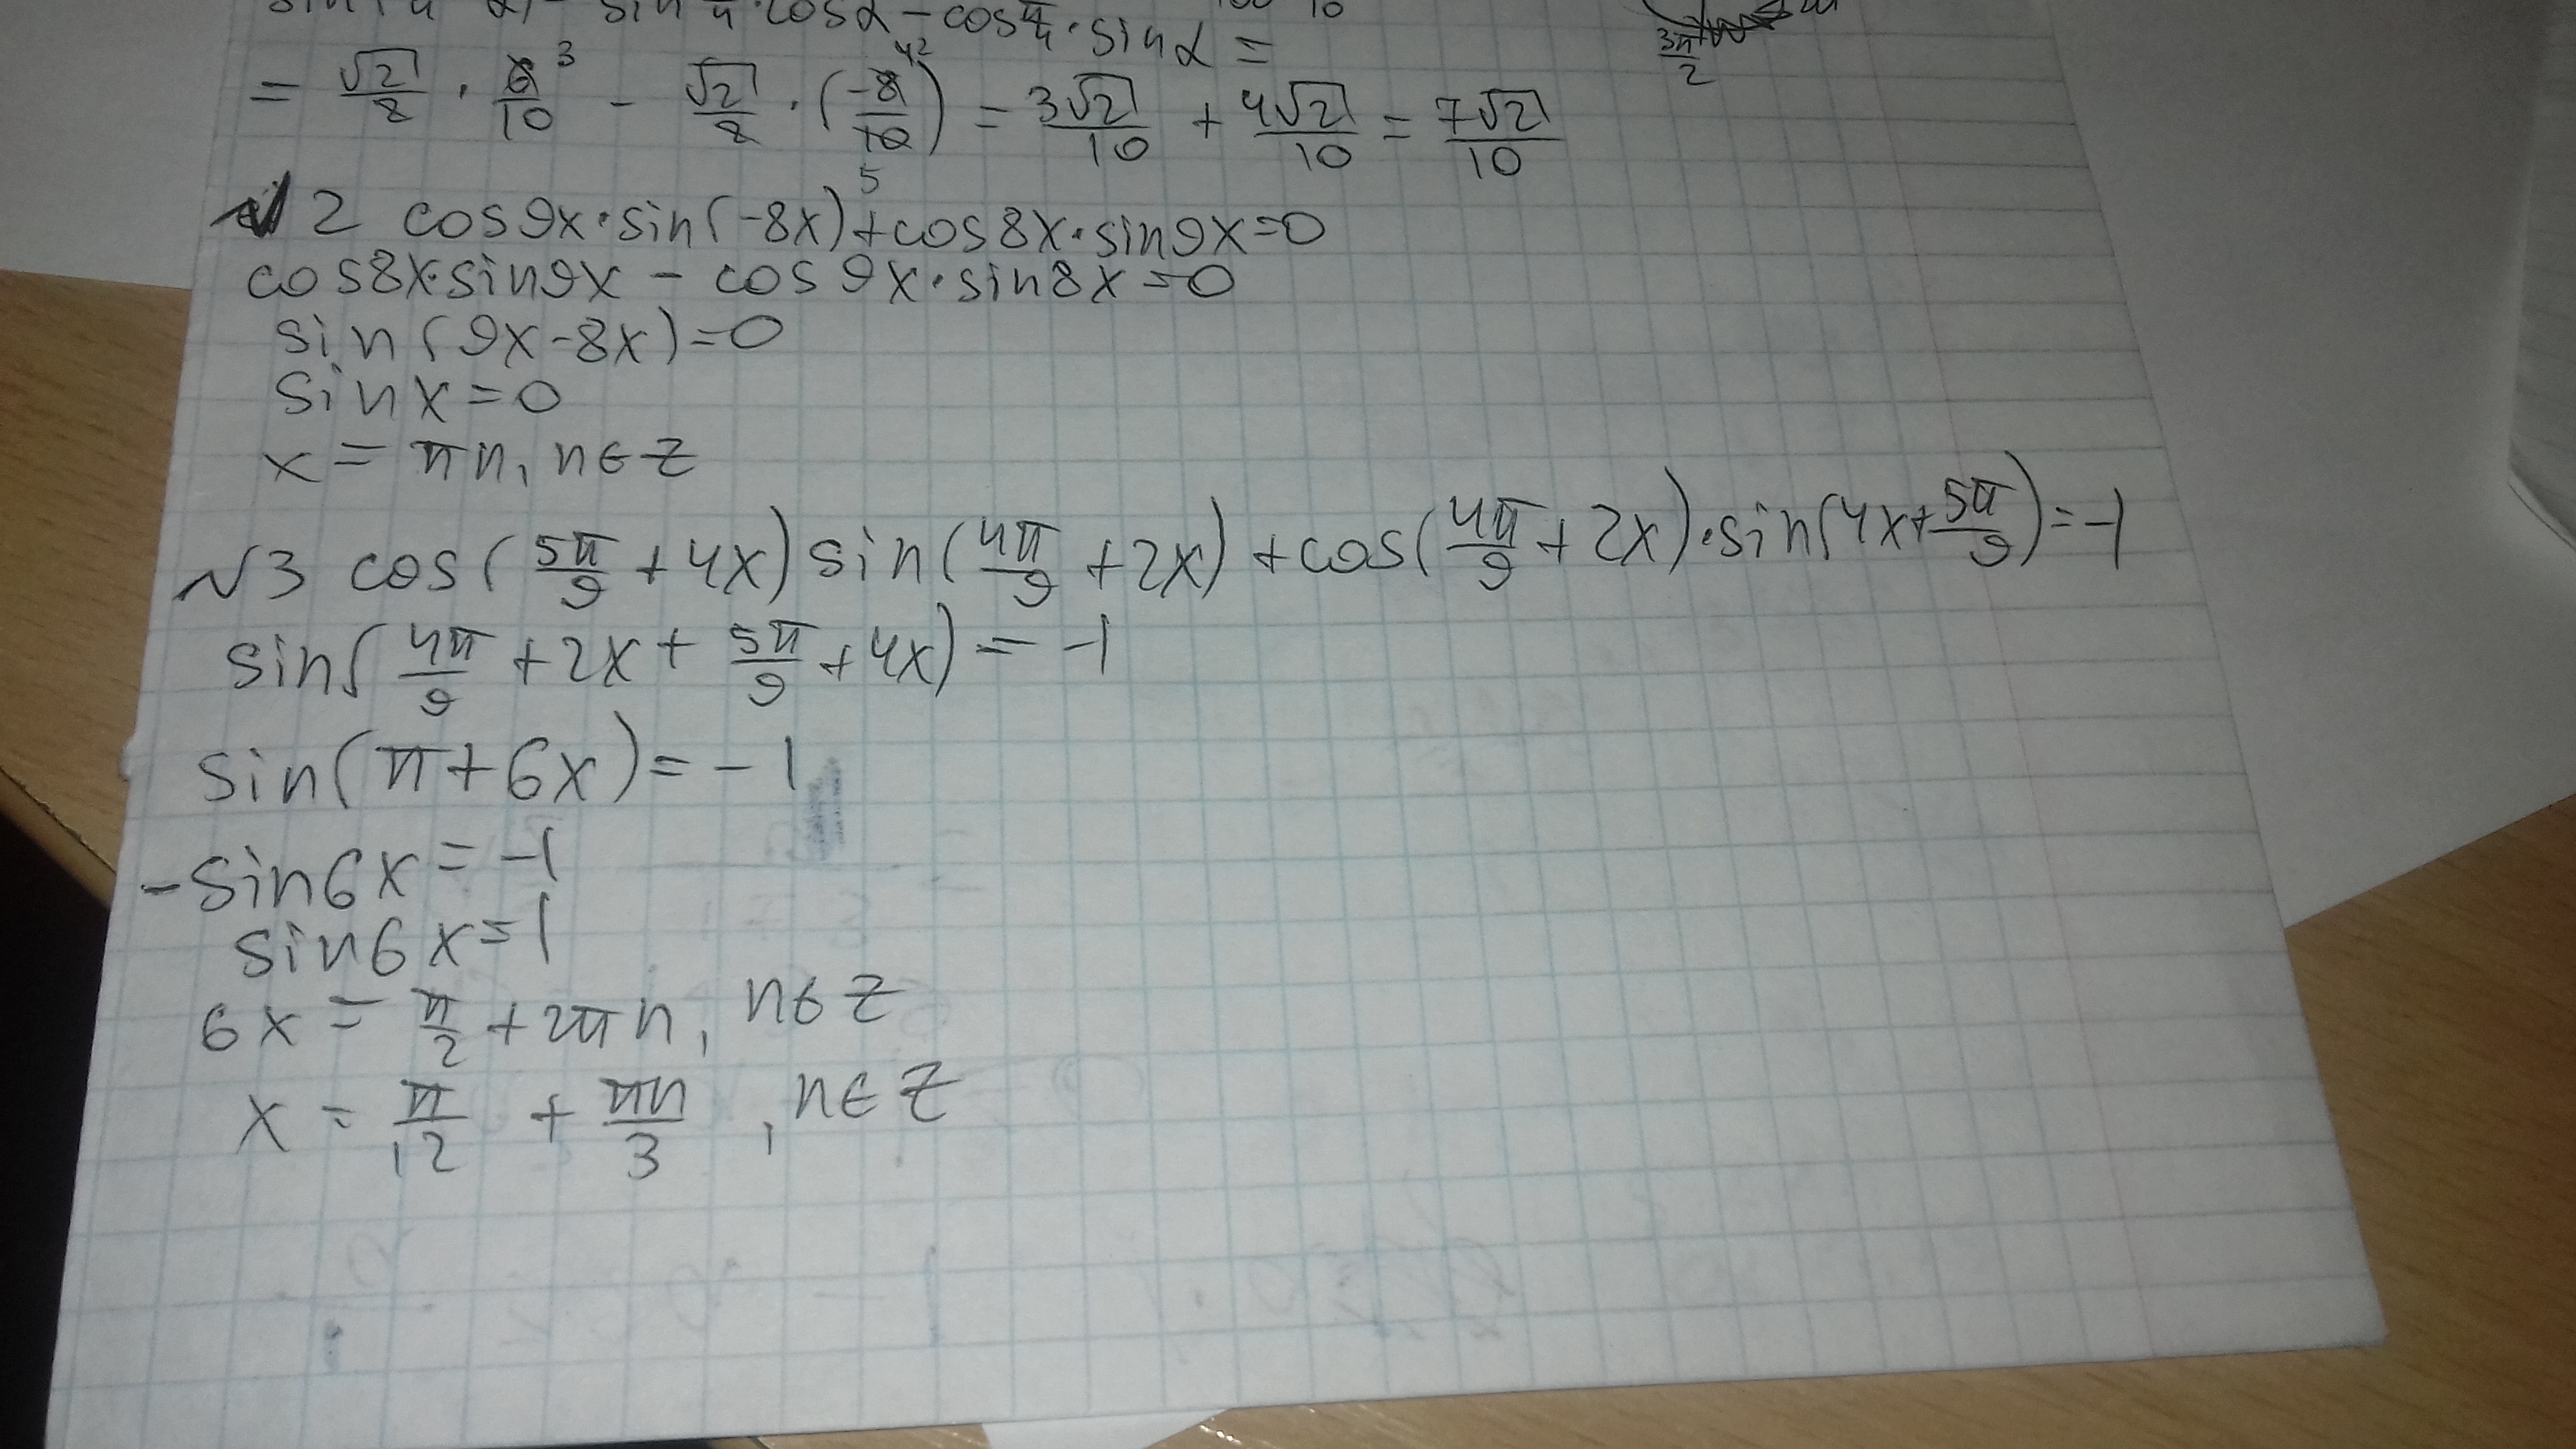 sin π/4 · cosα - cos π/4 · sinα =
= √2/2 · 6/10 3 - √2/2 · (-8/10) 4 2 5 = 3√2/10 + 4√2/10 = 7√2/10
№2 cos9x·sin(-8x)+cos8x·sin9x=0
cos8x·sin9x - cos9x·sin8x=0
sin(9x-8x)=0
sinx=0
x = πn, n∈Z
№3 cos(5π/9 + 4x) sin(4π/9 + 2x) + cos(4π/9 + 2x)·sin(4x+5π/9)=-1
sin(4π/9 + 2x + 5π/9 + 4x) = -1
sin(π+6x)=-1
-sin6x=-1
sin6x=1
6x = π/2 + 2πn, n∈Z
x = π/12 + πn/3, n∈Z
3π/2